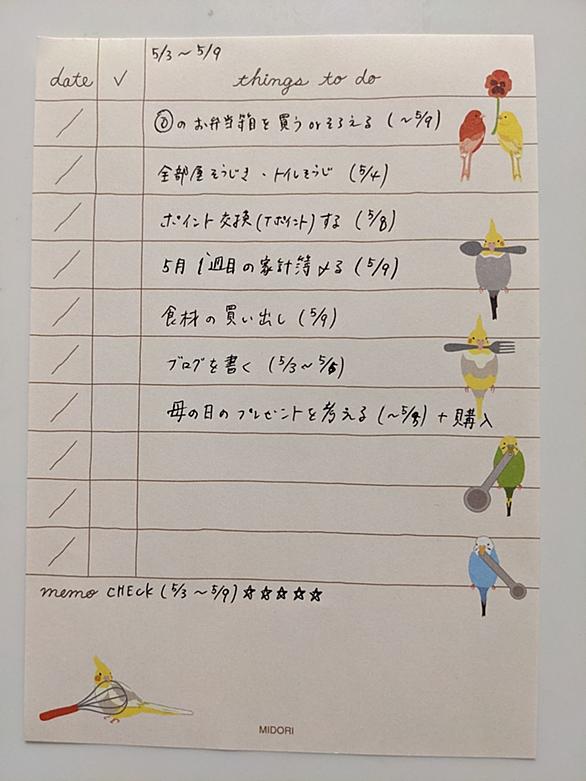 5/3～5/9
date ✓ things to do
のお弁当箱を買うorそろえる (～5/9)
全部屋そうじき・トイレそうじ (5/4)
ポイント交換(Tポイント)する (5/8)
5月1週目の家計簿〆る (5/9)
食材の買い出し (5/9)
ブログを書く (5/3～
母の日のプレゼントを考える (～ + 購入
memo CHECK (5/3～5/9) ☆☆☆☆☆
MIDORI